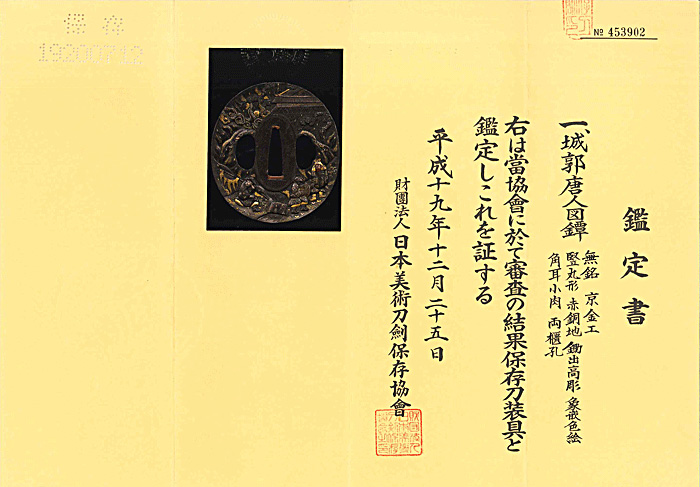 鑑定書
一、城郭唐人図鐔
無銘 京金工
竪丸形 赤銅地 鋤出高彫 象嵌色絵
角耳小肉 両櫃孔
右は當協會に於て審査の結果保存刀装具と
鑑定しこれを証する
平成十九年十二月二十五日
財團法人 日本美術刀劍保存協會
№ 453902
保存